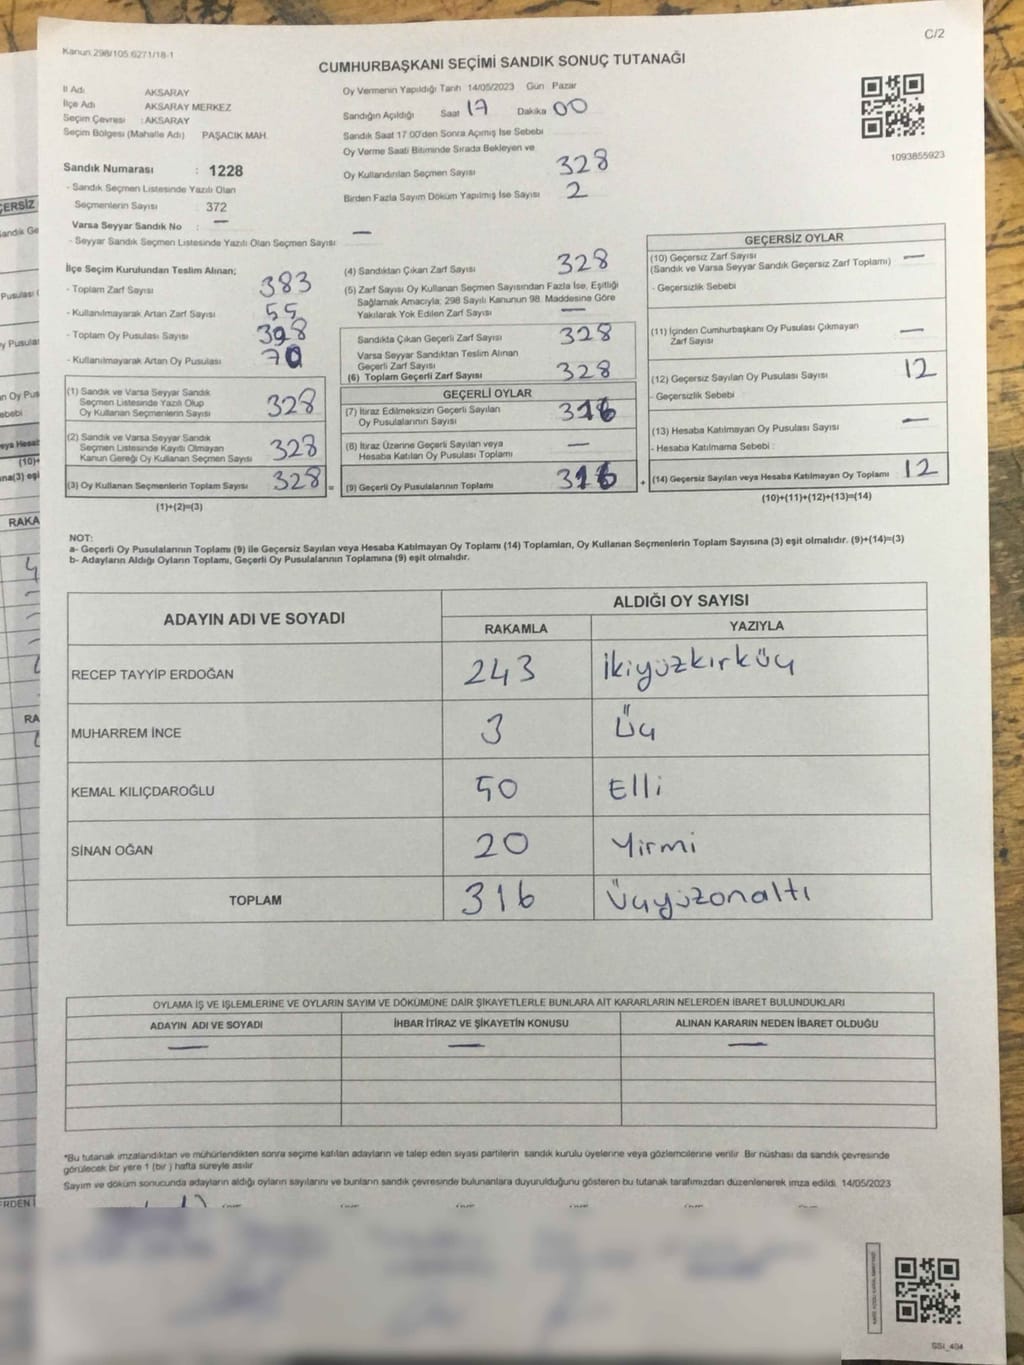 C/2
Kanun:298/105:6271/18-1
CUMHURBAŞKANI SEÇİMİ SANDIK SONUÇ TUTANAĞI
İl Adı AKSARAY
İlçe Adı AKSARAY MERKEZ
Seçim Çevresi : AKSARAY
Seçim Bölgesi (Mahalle Adı) PAŞACIK MAH.
Sandık Numarası : 1228
- Sandık Seçmen Listesinde Yazılı Olan
Seçmenlerin Sayısı 372
Varsa Seyyar Sandık No : —
- Seyyar Sandık Seçmen Listesinde Yazılı Olan Seçmen Sayısı —
Oy Vermenin Yapıldığı Tarih 14/05/2023 Gün Pazar
Sandığın Açıldığı Saat 17 Dakika 00
Sandık Saat 17:00'den Sonra Açılmış İse Sebebi
Oy Verme Saati Bitiminde Sırada Bekleyen ve
Oy Kullandırılan Seçmen Sayısı 328
Birden Fazla Sayım Döküm Yapılmış İse Sayısı 2
1093855923
İlçe Seçim Kurulundan Teslim Alınan;
- Toplam Zarf Sayısı 383
- Kullanılmayarak Artan Zarf Sayısı 55
- Toplam Oy Pusulası Sayısı 398
- Kullanılmayarak Artan Oy Pusulası 70
(1) Sandık ve Varsa Seyyar Sandık
Seçmen Listesinde Yazılı Olup
Oy Kullanan Seçmenlerin Sayısı 328
(2) Sandık ve Varsa Seyyar Sandık
Seçmen Listesinde Kayıtlı Olmayan
Kanun Gereği Oy Kullanan Seçmen Sayısı 328
(3) Oy Kullanan Seçmenlerin Toplam Sayısı 328 =
(1)+(2)=(3)
(4) Sandıktan Çıkan Zarf Sayısı 328
(5) Zarf Sayısı Oy Kullanan Seçmen Sayısından Fazla İse, Eşitliği
Sağlamak Amacıyla; 298 Sayılı Kanunun 98. Maddesine Göre
Yakılarak Yok Edilen Zarf Sayısı —
Sandıkta Çıkan Geçerli Zarf Sayısı 328
Varsa Seyyar Sandıktan Teslim Alınan
Geçerli Zarf Sayısı
(6) Toplam Geçerli Zarf Sayısı 328
GEÇERLİ OYLAR
(7) İtiraz Edilmeksizin Geçerli Sayılan
Oy Pusulalarının Sayısı 316
(8) İtiraz Üzerine Geçerli Sayılan veya
Hesaba Katılan Oy Pusulası Toplamı —
(9) Geçerli Oy Pusulalarının Toplamı 316 +
GEÇERSİZ OYLAR
(10) Geçersiz Zarf Sayısı —
(Sandık ve Varsa Seyyar Sandık Geçersiz Zarf Toplamı)
- Geçersizlik Sebebi
(11) İçinden Cumhurbaşkanı Oy Pusulası Çıkmayan
Zarf Sayısı —
(12) Geçersiz Sayılan Oy Pusulası Sayısı 12
- Geçersizlik Sebebi
(13) Hesaba Katılmayan Oy Pusulası Sayısı —
- Hesaba Katılmama Sebebi :
(14) Geçersiz Sayılan veya Hesaba Katılmayan Oy Toplamı 12
(10)+(11)+(12)+(13)=(14)
NOT:
a- Geçerli Oy Pusulalarının Toplamı (9) ile Geçersiz Sayılan veya Hesaba Katılmayan Oy Toplamı (14) Toplamları, Oy Kullanan Seçmenlerin Toplam Sayısına (3) eşit olmalıdır. (9)+(14)=(3)
b- Adayların Aldığı Oyların Toplamı, Geçerli Oy Pusulalarının Toplamına (9) eşit olmalıdır.
ADAYIN ADI VE SOYADI ALDIĞI OY SAYISI
RAKAMLA YAZIYLA
RECEP TAYYİP ERDOĞAN 243 İkiyüzkırküç
MUHARREM İNCE 3 Üç
KEMAL KILIÇDAROĞLU 50 Elli
SİNAN OĞAN 20 Yirmi
TOPLAM 316 Üçyüzonaltı
OYLAMA İŞ VE İŞLEMLERİNE VE OYLARIN SAYIM VE DÖKÜMÜNE DAİR ŞİKAYETLERLE BUNLARA AİT KARARLARIN NELERDEN İBARET BULUNDUKLARI
ADAYIN ADI VE SOYADI İHBAR İTİRAZ VE ŞİKAYETİN KONUSU ALINAN KARARIN NEDEN İBARET OLDUĞU
— — —
*Bu tutanak imzalandıktan ve mühürlendikten sonra seçime katılan adayların ve talep eden siyasi partilerin sandık kurulu üyelerine veya gözlemcilerine verilir. Bir nüshası da sandık çevresinde
görülecek bir yere 1 (bir) hafta süreyle asılır
Sayım ve döküm sonucunda adayların aldığı oyların sayılarını ve bunların sandık çevresinde bulunanlara duyurulduğunu gösteren bu tutanak tarafımızdan düzenlenerek imza edildi. 14/05/2023
SSI_404